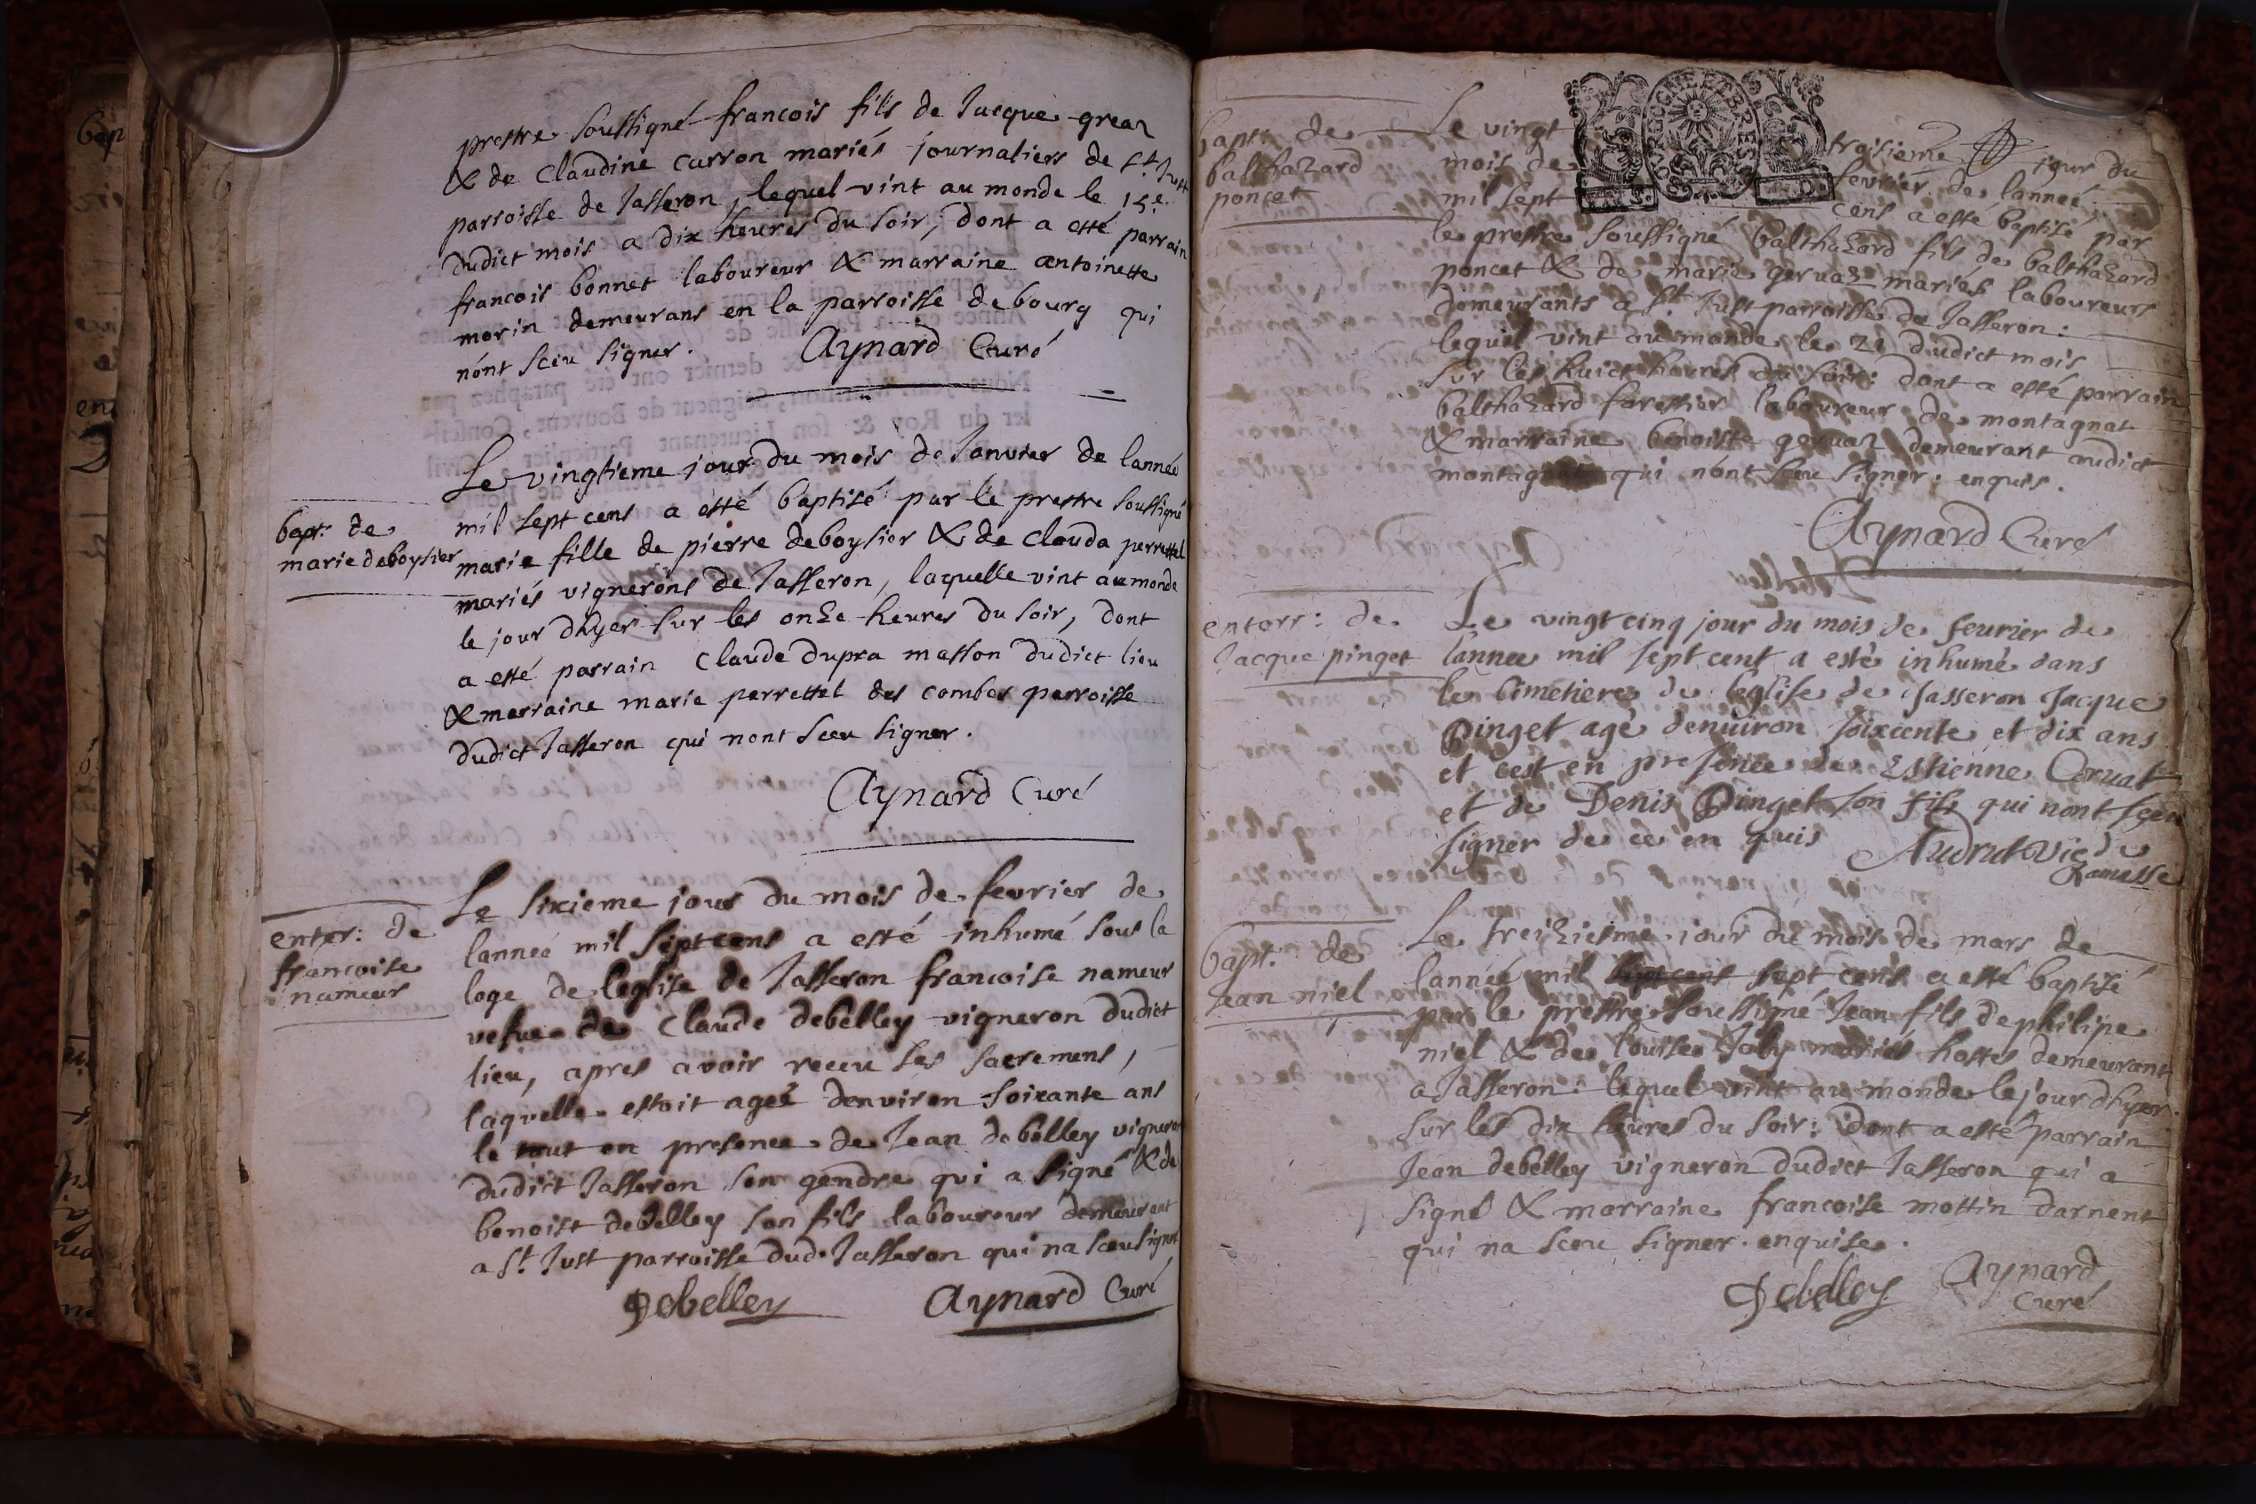 prestre soussigné francois fils de Jacque greaz
& de Claudine curron mariés journaliers de St. Just
parroisse de Jasseron, lequel vint au monde le 15e.
dudict mois a dix heures du soir, dont a esté parrain
francois bonnet laboureur & marraine antoinette
morin demeurans en la parroisse de bourg qui
nónt sceu signer. Aynard Curé
bapt: de
marie deboysier
Le vingtieme jour du mois de Janvier de lannée
mil sept cens a esté baptisé par le prestre soussigné
marie fille de pierre deboysier & de Clauda perrettet
mariés vignerons de Jasseron, laquelle vint au monde
le jour dhyer sur les onze heures du soir, dont
a esté parrain Claude Dupra masson dudict lieu
& marraine marie perrettet des combes parroisse
dudict Jasseron qui nont sceu signer.
Aynard Curé
enter: de
francoise
nameur
Le sixieme jour du mois de fevrier de
lanneé mil sept cens a esté inhumé sous la
loge de leglise de Jasseron francoise nameur
vefue de Claude debelley vigneron dudict
lieu, apres avoir receu les sacremens,
laquelle estoit ageé denviron soixante ans
le tout en presence de Jean debelley vigneron
dudict Jasseron son gendre qui a signé & de
benoist debelley son fils laboureur demeurant
a St. Just parroisse dud. Jasseron qui na sceu signer
Debelley Aynard Curé
bapt: de
balthazard
poncet
Le vingt troisieme jour du
mois de fevrier de lanneé
mil sept cens a esté baptisé par
le prestre soussigné balthazard fils de balthazard
poncet & de marie gervaz mariés laboureurs
demeurants a St. Just parroisse de Jasseron:
lequel vint au monde le 21 dudict mois
sur les huict heures du soir: dont a esté parrain
balthazard forestier laboureur de montagnat
& marraine benoiste gervaz demeurant audict
montagnat qui nont sceu signer. enquis.
Aynard Curé
enterr: de
Jacque pinget
Le vingt cinq jour du mois de feurier de
lannee mil sept cent a estè inhumè dans
le Cimetiere de leglise de Jasseron Jacque
Pinget agè denuiron soixcente et dix ans
et cest en presence de Estienne Coruat
et de Denis Pinget son fils qui nont sceu
signer de ce en quis Audrut Vic de
Ramasse
bapt: de
Jean niel
Le treiziesme jour du mois de mars de
lanneé mil sept cens a esté baptizé
par le prestre soussigné Jean fils de philipe
niel & de louise Joly mariés hostes demeurant
a Jasseron: lequel vint au monde le jour dhyer
sur les dix heures du soir: dont a esté parrain
Jean debelley vigneron dudict Jasseron qui a
signé & marraine francoise mottin darnent
qui na sceu signer. enquise.
Debelley Aynard
Curé